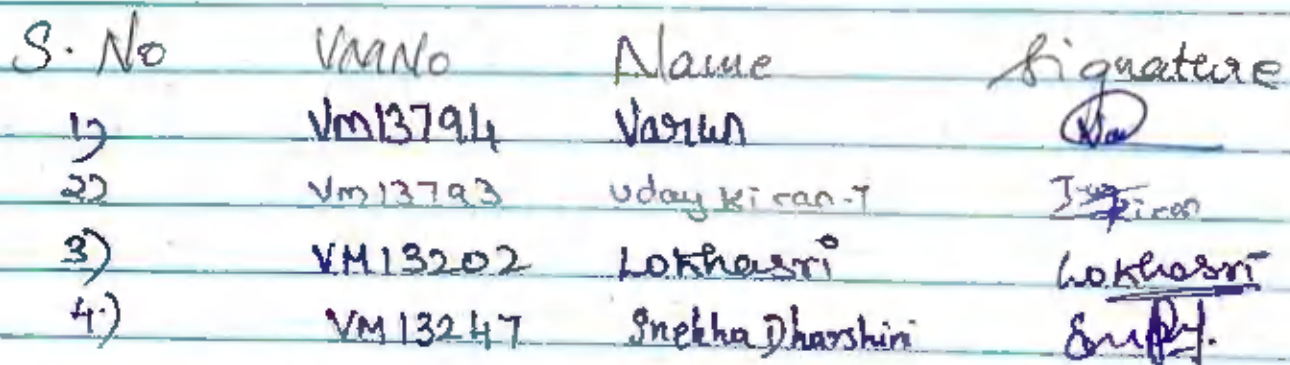 S. No VMNo Name Signature
1) Vm13794 Varun
2) Vm13793 uday kiran.T
3) VM13202 Lokhasri Lokhasri
4) VM13247 Snekha Dharshini